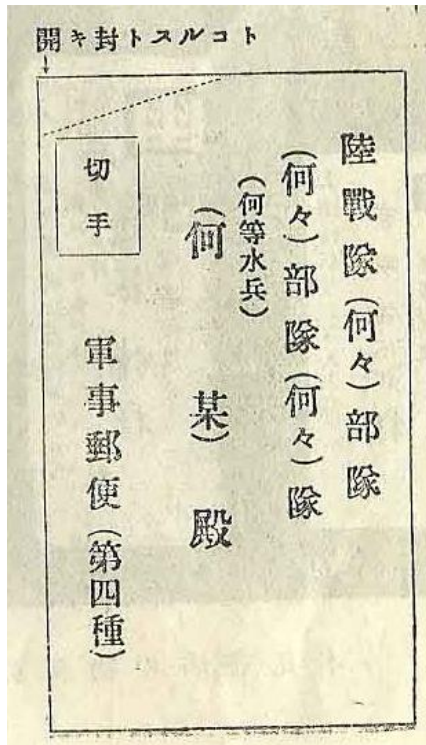 開キ封トスルコト
陸戰隊(何々)部隊
(何々)部隊(何々)隊
(何等水兵)
(何某)殿
切手
軍事郵便(第四種)